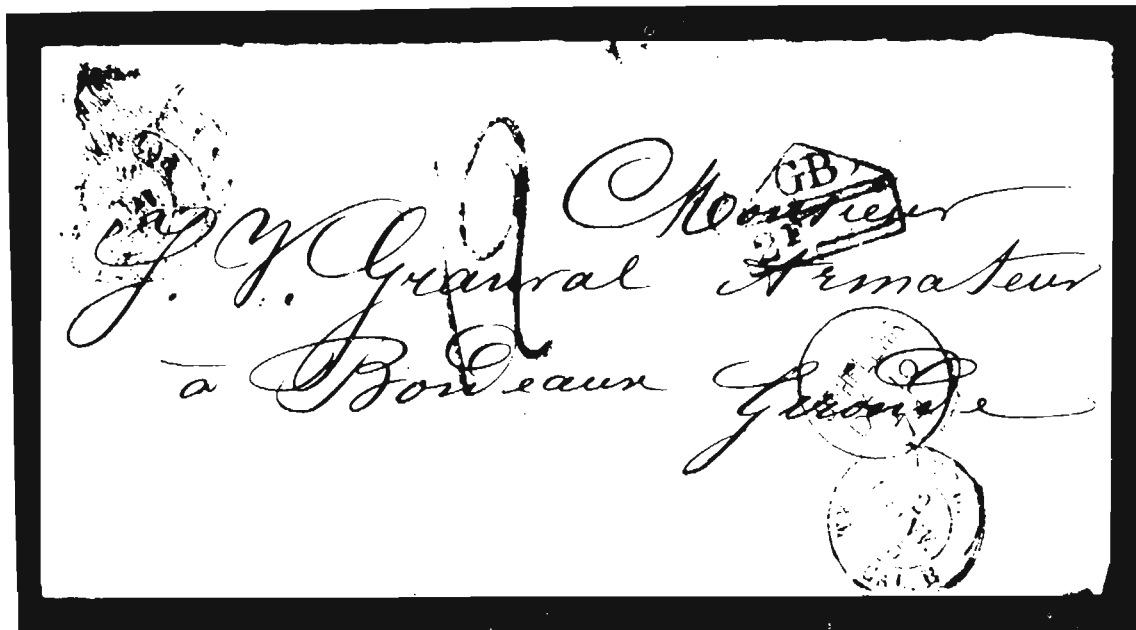 Monsieur
GB
2F
J. Y. Granval Armateur
à Bordeaux Gironde